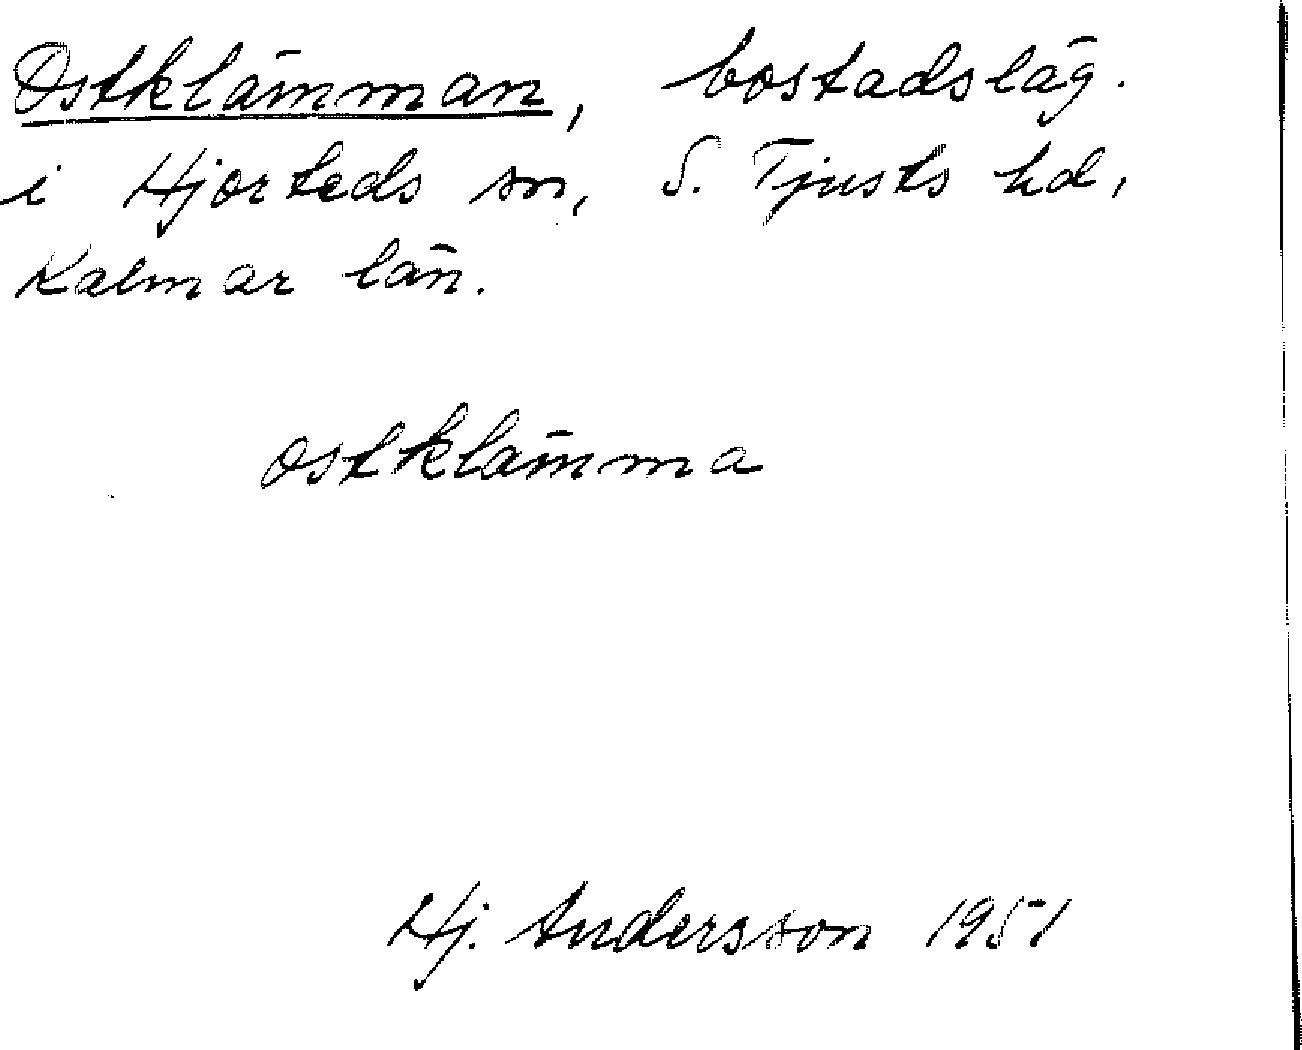 Ostklämman, bostadsläg.
i Hjorteds sn, S. Tjusts hd,
Kalmar län.
ostklämma
Hj. Andersson 1951